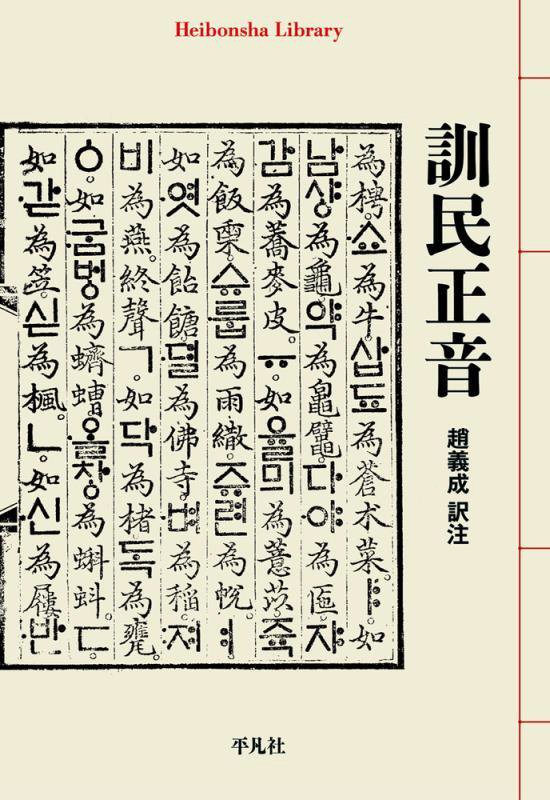 Heibonsha Library
訓民正音
趙義成 訳注
為梬。쇼為牛。삽됴為蒼朮菜。ㅑ。如
남샤ᇰ為龜。약為𪓟鼊。다야為匜。쟈
감為蕎麥皮。ㅠ。如율믜為薏苡。쥭
為飯𣖄。슈룹為雨繖。쥬련為帨。ㅕ。
如엿為飴餹。뎔為佛寺。벼為稻。져
비為燕。終聲ㄱ。如닥為楮。독為甕。
ㆁ。如굼버ᇰ為蠐螬。올차ᇰ為蝌蚪。ㄷ。
如갇為笠。싣為楓。ㄴ。如신為屨。반
平凡社